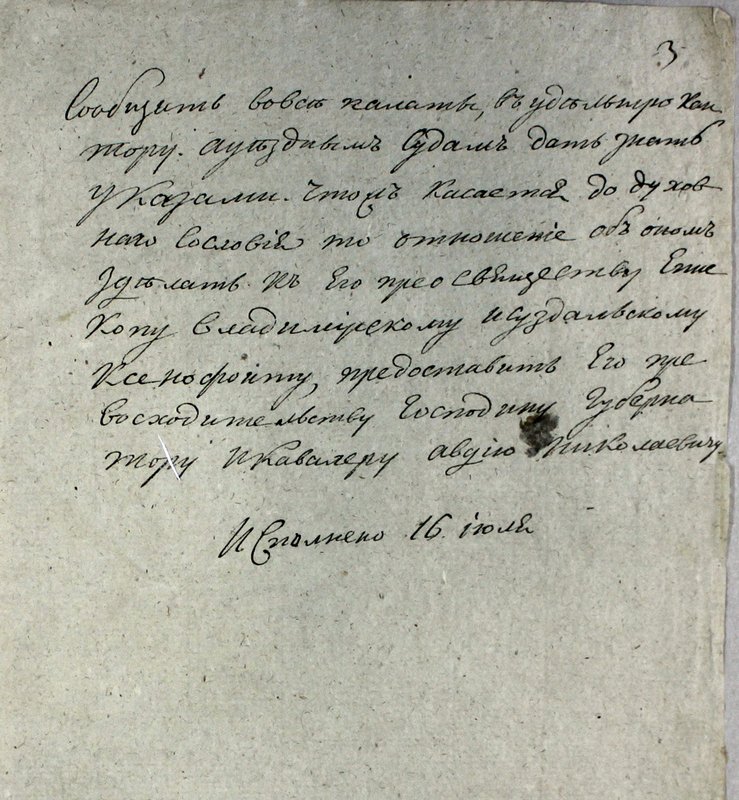 3
Сообщить вовсѣ палаты, въ удѣльную кон
тору. ауѣзднымъ Судамъ дать знать
указами. Чтожъ касается до духов
наго Сословія то отношеніе объ ономъ
Здѣлать къ Его преосвященству Епис
копу Владимірскому исуздальскому
Ксенофонту, предоставить Его пре
восходительству Господину Губерна
тору икавалеру авдію николаевичу.
Исполнено 16 іюля